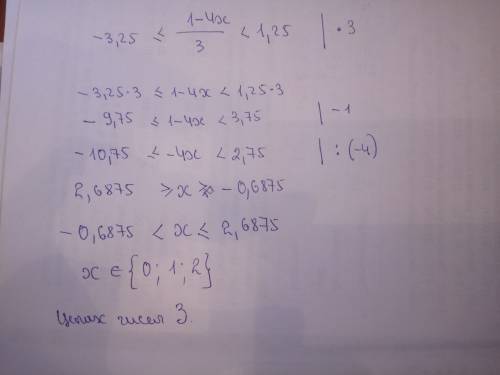 -3,25 ≤ (1-4x)/3 < 1,25 | · 3
-3,25·3 ≤ 1-4x < 1,25·3
-9,75 ≤ 1-4x < 3,75 | -1
-10,75 ≤ -4x < 2,75 | : (-4)
2,6875 ≥ x > -0,6875
-0,6875 < x ≤ 2,6875
x ∈ {0; 1; 2}
Целых чисел 3.